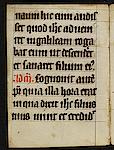 naum hic cum audis
set quod ihc adven
roga
bat eum ut descender
et sanaret filium ei
Cognouit autem
quia illa hora erat
in qua dixit ihc filius
tuus uiuit et credid